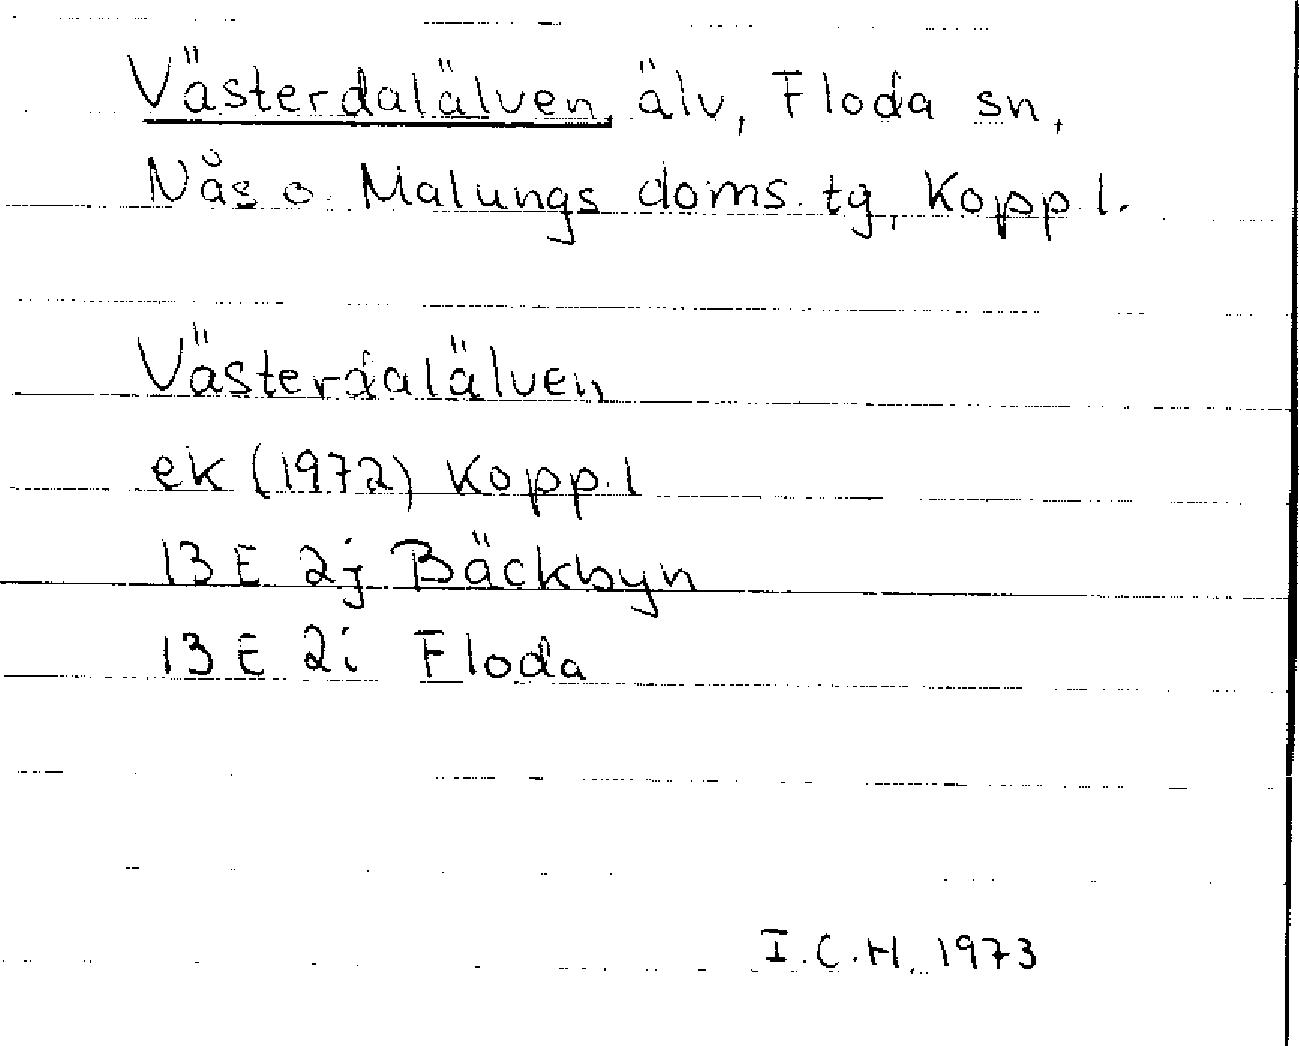 Västerdalälven, älv, Floda sn,
Nås o. Malungs doms. tg, Kopp. l.
Västerdalälven
ek (1972) Kopp. l
13 E 2j Bäckbyn
13 E 2i Floda
I.C.H. 1973